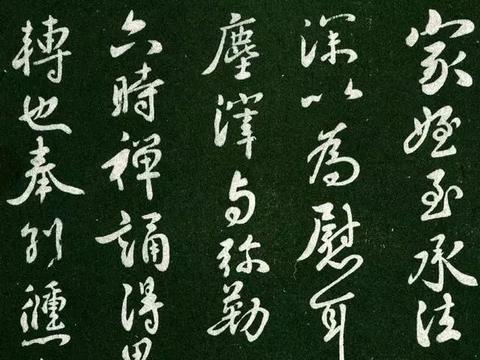 家姪至承法
深以為慰耳
塵滓与弥勒
六時禪誦得
轉也奉別